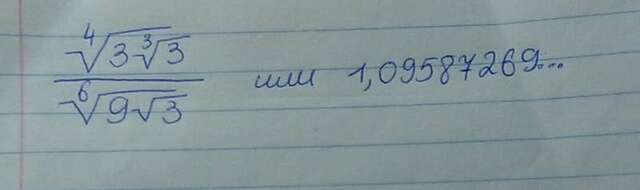 \frac{\sqrt[4]{3\sqrt[3]{3}}}{\sqrt[6]{9\sqrt{3}}} или 1,09587269...